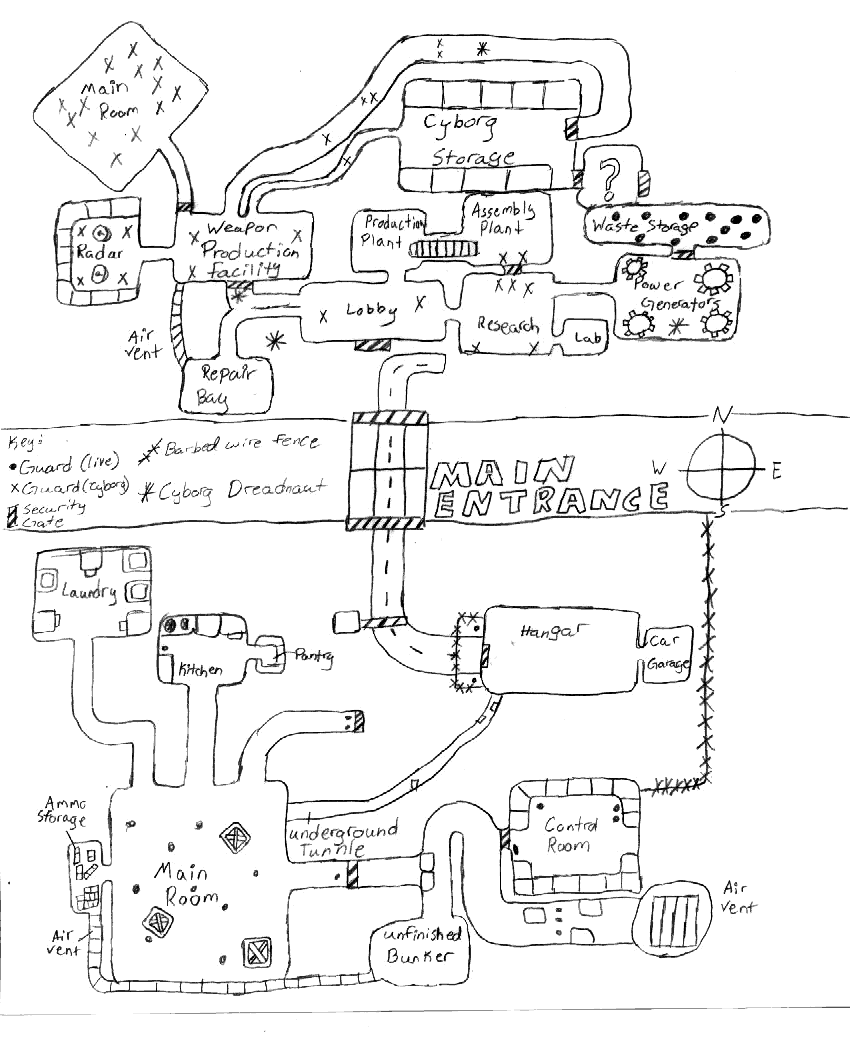 Main
Room
Cyborg
Storage
?
Weapon
Production
facility
Radar
Production
Plant
Assembly
Plant
Waste Storage
Power
Generators
Lobby
Research
Lab
Air
vent
Repair
Bay
Key:
•Guard (live)
xGuard (cyborg)
Security
Gate
Barbed wire fence
Cyborg Dreadnaut
MAIN
ENTRANCE
N
W
E
S
Laundry
Kitchen
Pantry
Hangar
Car
Garage
Ammo
Storage
underground
Tunnle
Main
Room
Control
Room
Air
vent
Air
vent
unfinished
Bunker